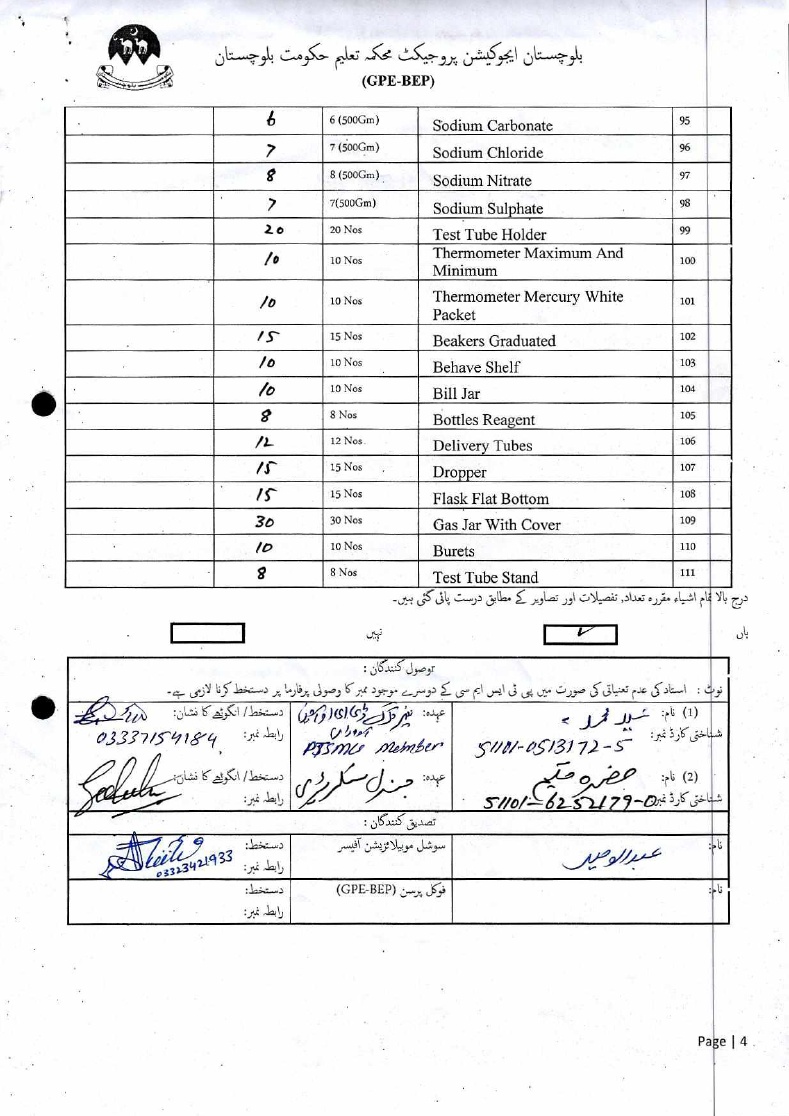 بلوچستان ایجوکیشن پروجیکٹ محکمہ تعلیم حکومت بلوچستان
(GPE-BEP)
6 6 (500Gm) Sodium Carbonate 95
7 7 (500Gm) Sodium Chloride 96
8 8 (500Gm) Sodium Nitrate 97
7 7(500Gm) Sodium Sulphate 98
20 20 Nos Test Tube Holder 99
10 10 Nos Thermometer Maximum And Minimum 100
10 10 Nos Thermometer Mercury White Packet 101
15 15 Nos Beakers Graduated 102
10 10 Nos Behave Shelf 103
10 10 Nos Bill Jar 104
8 8 Nos Bottles Reagent 105
12 12 Nos. Delivery Tubes 106
15 15 Nos Dropper 107
15 15 Nos Flask Flat Bottom 108
30 30 Nos Gas Jar With Cover 109
10 10 Nos Burets 110
8 8 Nos Test Tube Stand 111
درج بالا تمام اشیاء مقررہ تعداد, تفصیلات اور تصاویر کے مطابق درست پائی گئی ہیں۔
ہاں ✓ نہیں
توصول کنندگان :
نوٹ : استاد کی عدم تعنیاتی کی صورت میں پی ٹی ایس ایم سی کے دوسرے موجود ممبر کا وصولی پرفارما پر دستخط کرنا لازمی ہے۔
(1) نام: عہدہ: دستخط / انگوٹھے کا نشان:
شناختی کارڈ نمبر: 51101-0513172-5 PTSMC Member رابطہ نمبر: 03337154184
(2) نام: عہدہ: جنرل سکریٹری دستخط / انگوٹھے کا نشان:
شناختی کارڈ نمبر: 51101-6252179-0 رابطہ نمبر:
تصدیق کنندگان :
نام: عبدالوحید سوشل موبیلائزیشن آفیسر دستخط:
رابطہ نمبر: 03323421933
نام: فوکل پرسن (GPE-BEP) دستخط:
رابطہ نمبر:
Page | 4